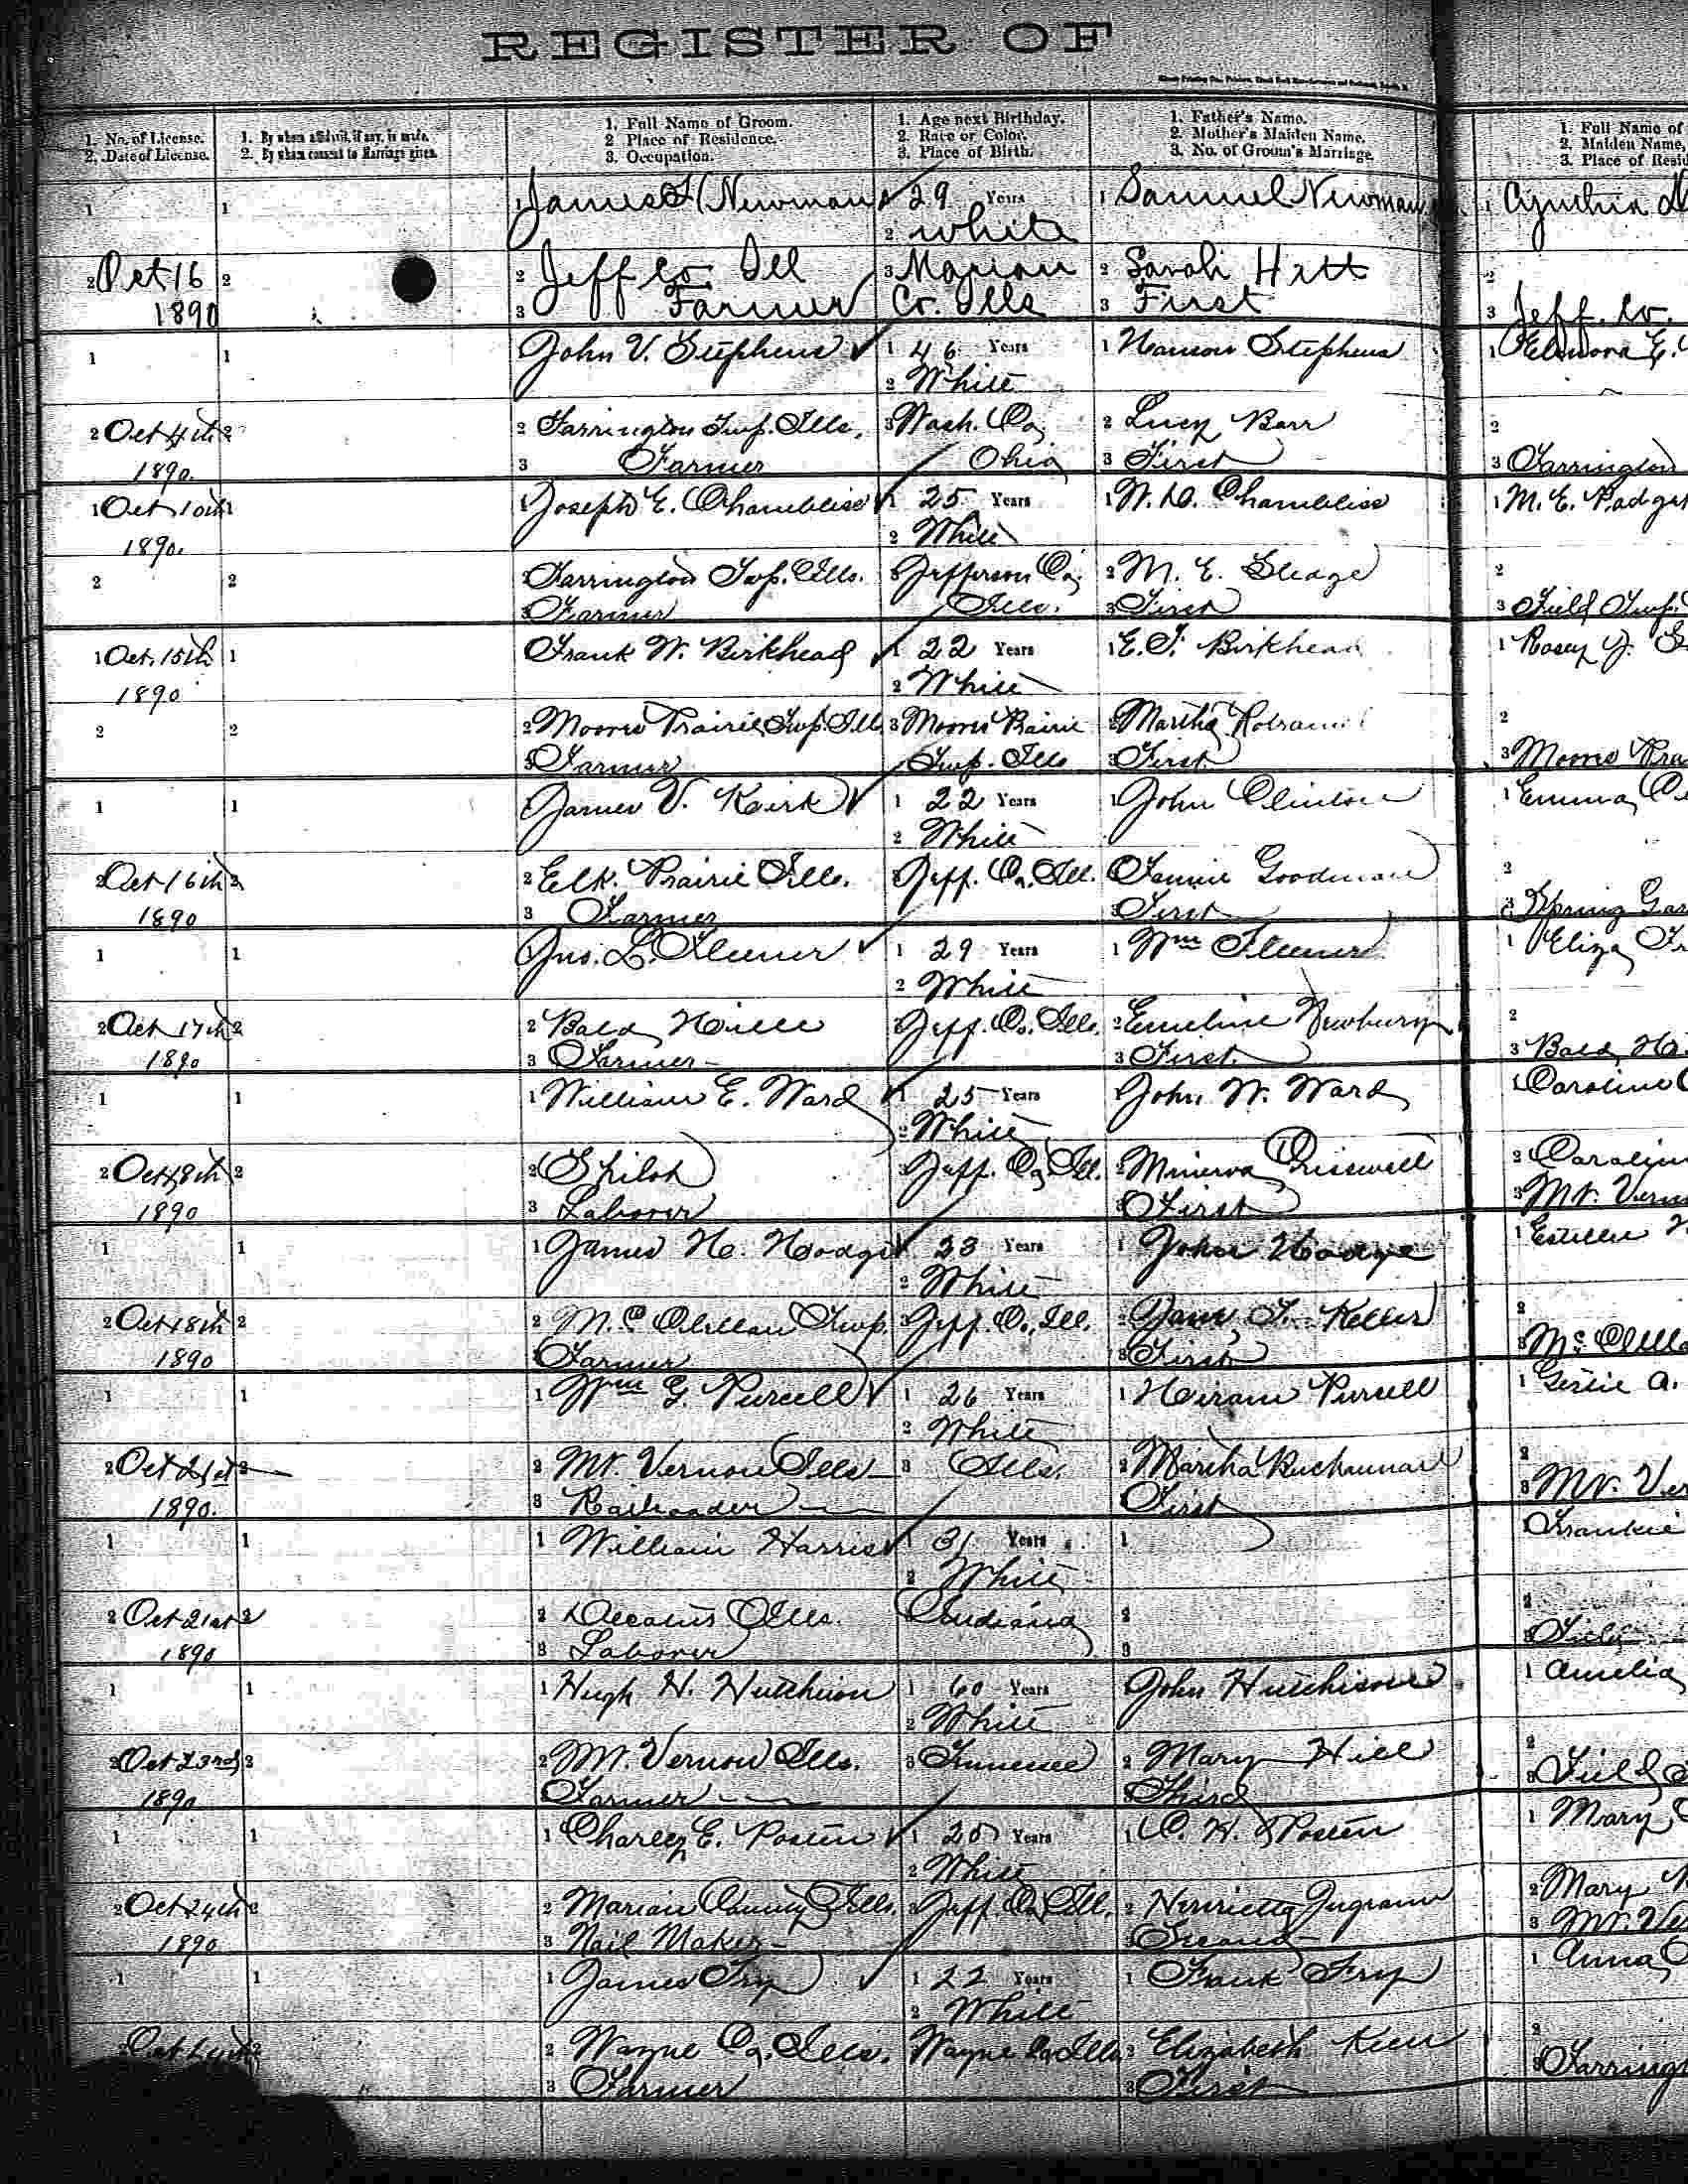 REGISTER OF
1. No. of License.
2. Date of License.
1. By whom affidavit, if any, is made.
2. By whom consent to Marriage given.
1. Full Name of Groom.
2 Place of Residence.
3. Occupation.
1. Age next Birthday.
2. Race or Color.
3. Place of Birth.
1. Father's Name.
2. Mother's Maiden Name.
3. No. of Groom's Marriage.
1. Full Name of
2. Maiden Name,
3. Place of Resid
1 1 1 James H Newman 29 Years 1 Samuel Newman 1 Cynthia
2 White
2 Oct 16 2 2 Jeff Co Ill 3 Marion 2 Sarah Hitt 2
1890 3 Farmer Co. Ills 3 First 3 Jeff. Co.
1 1 John V. Stephens 1 46 Years 1 Stephens 1 E.
2 White
2 Oct 4th 2 2 Farrington Twp. Ills. 3 Wash. Co. 2 Lucy Barr 2
1890. 3 Farmer Ohio 3 First 3 Farrington
1 Oct 10th 1 1 Joseph E. Chambliss 1 25 Years 1 W. D. Chambliss 1 M. E. Padget
1890. 2 White
2 2 2 Farrington Twp. Ills. 3 Jefferson Co. 2 M. E. Sledge 2
3 Farmer Ills. 3 First 3 Field Twp.
1 Oct. 15th 1 Frank W. Birkhead 22 Years 1 E. T. Birkhead 1 Rosey J.
1890 2 White
2 2 2 Moores Prairie Twp. Ill 3 Moores Prairie 2 Martha 2
3 Farmer Twp. Ills 3 First 3 Moores Pra
1 1 James V. Kirk 1 22 Years 1 John Clinton 1 Emma
2 White
2 Oct 16th 2 2 Elk Prairie Ills. 3 Jeff. Co. Ill. Fannie Goodman 2
1890 3 Farmer 3 First 3 Spring Gar
1 1 Jno. L. Fleener 1 29 Years 1 Wm Fleener 1 Eliza
2 White
2 Oct 17th 2 2 Bald Hill 3 Jeff. Co. Ills. 2 Emeline Newburry 2
1890 3 Farmer 3 First 3 Bald
1 1 1 William E. Ward 1 25 Years 1 John W. Ward 1 Caroline
2 White
2 Oct 18th 2 2 Shiloh 3 Jeff. Co. Ill. 2 Minerva Criswell 2 Carolin
1890 3 Laborer 3 First 3 Mt. Vern
1 1 1 James H. Hodge 23 Years 1 John Hodge 1 Estelle
2 White
2 Oct 18th 2 2 McClellan Twp. 3 Jeff. Co. Ill. 2 Jane F. Keller 2
1890 3 Farmer 3 First 3 McClella
1 1 1 Wm G. Purcell 1 26 Years 1 Hiram Purcell 1 Gertie A.
2 White
2 Oct 21st 2 2 Mt. Vernon Ills 3 Ills. 2 Martha Buchannan 2
1890. 3 Railroader First 3 Mt. Ver
1 1 1 William Harris 1 31 Years 1 Frankie
2 White
2 Oct 21st 2 2 Decatur Ills. Indiana 2 2
1890 3 Laborer 3 3 Field
1 1 1 Hugh H. Hutchison 1 60 Years John Hutchison 1 Amelia
2 White
2 Oct 23rd 2 2 Mt. Vernon Ills. 3 Tennessee 2 Mary Hill 2
1890 Farmer Third 3 Field
1 1 1 Charley E. Posten 1 20 Years 1 O. H. Posten 1 Mary
2 White
2 Oct 24th 2 2 Marion County Ills. 3 Jeff. Co. Ill. 2 Henrietta Ingram 2 Mary
1890 3 Nail Maker 3 Second 3 Mt. Ve
1 1 1 James Fry 1 22 Years 1 Frank Fry 1 Anna
2 White
2 2 2 Wayne Co. Ills. Wayne Co Ills 2 Elizabeth 2
3 Farmer 3 First 3 Farringt